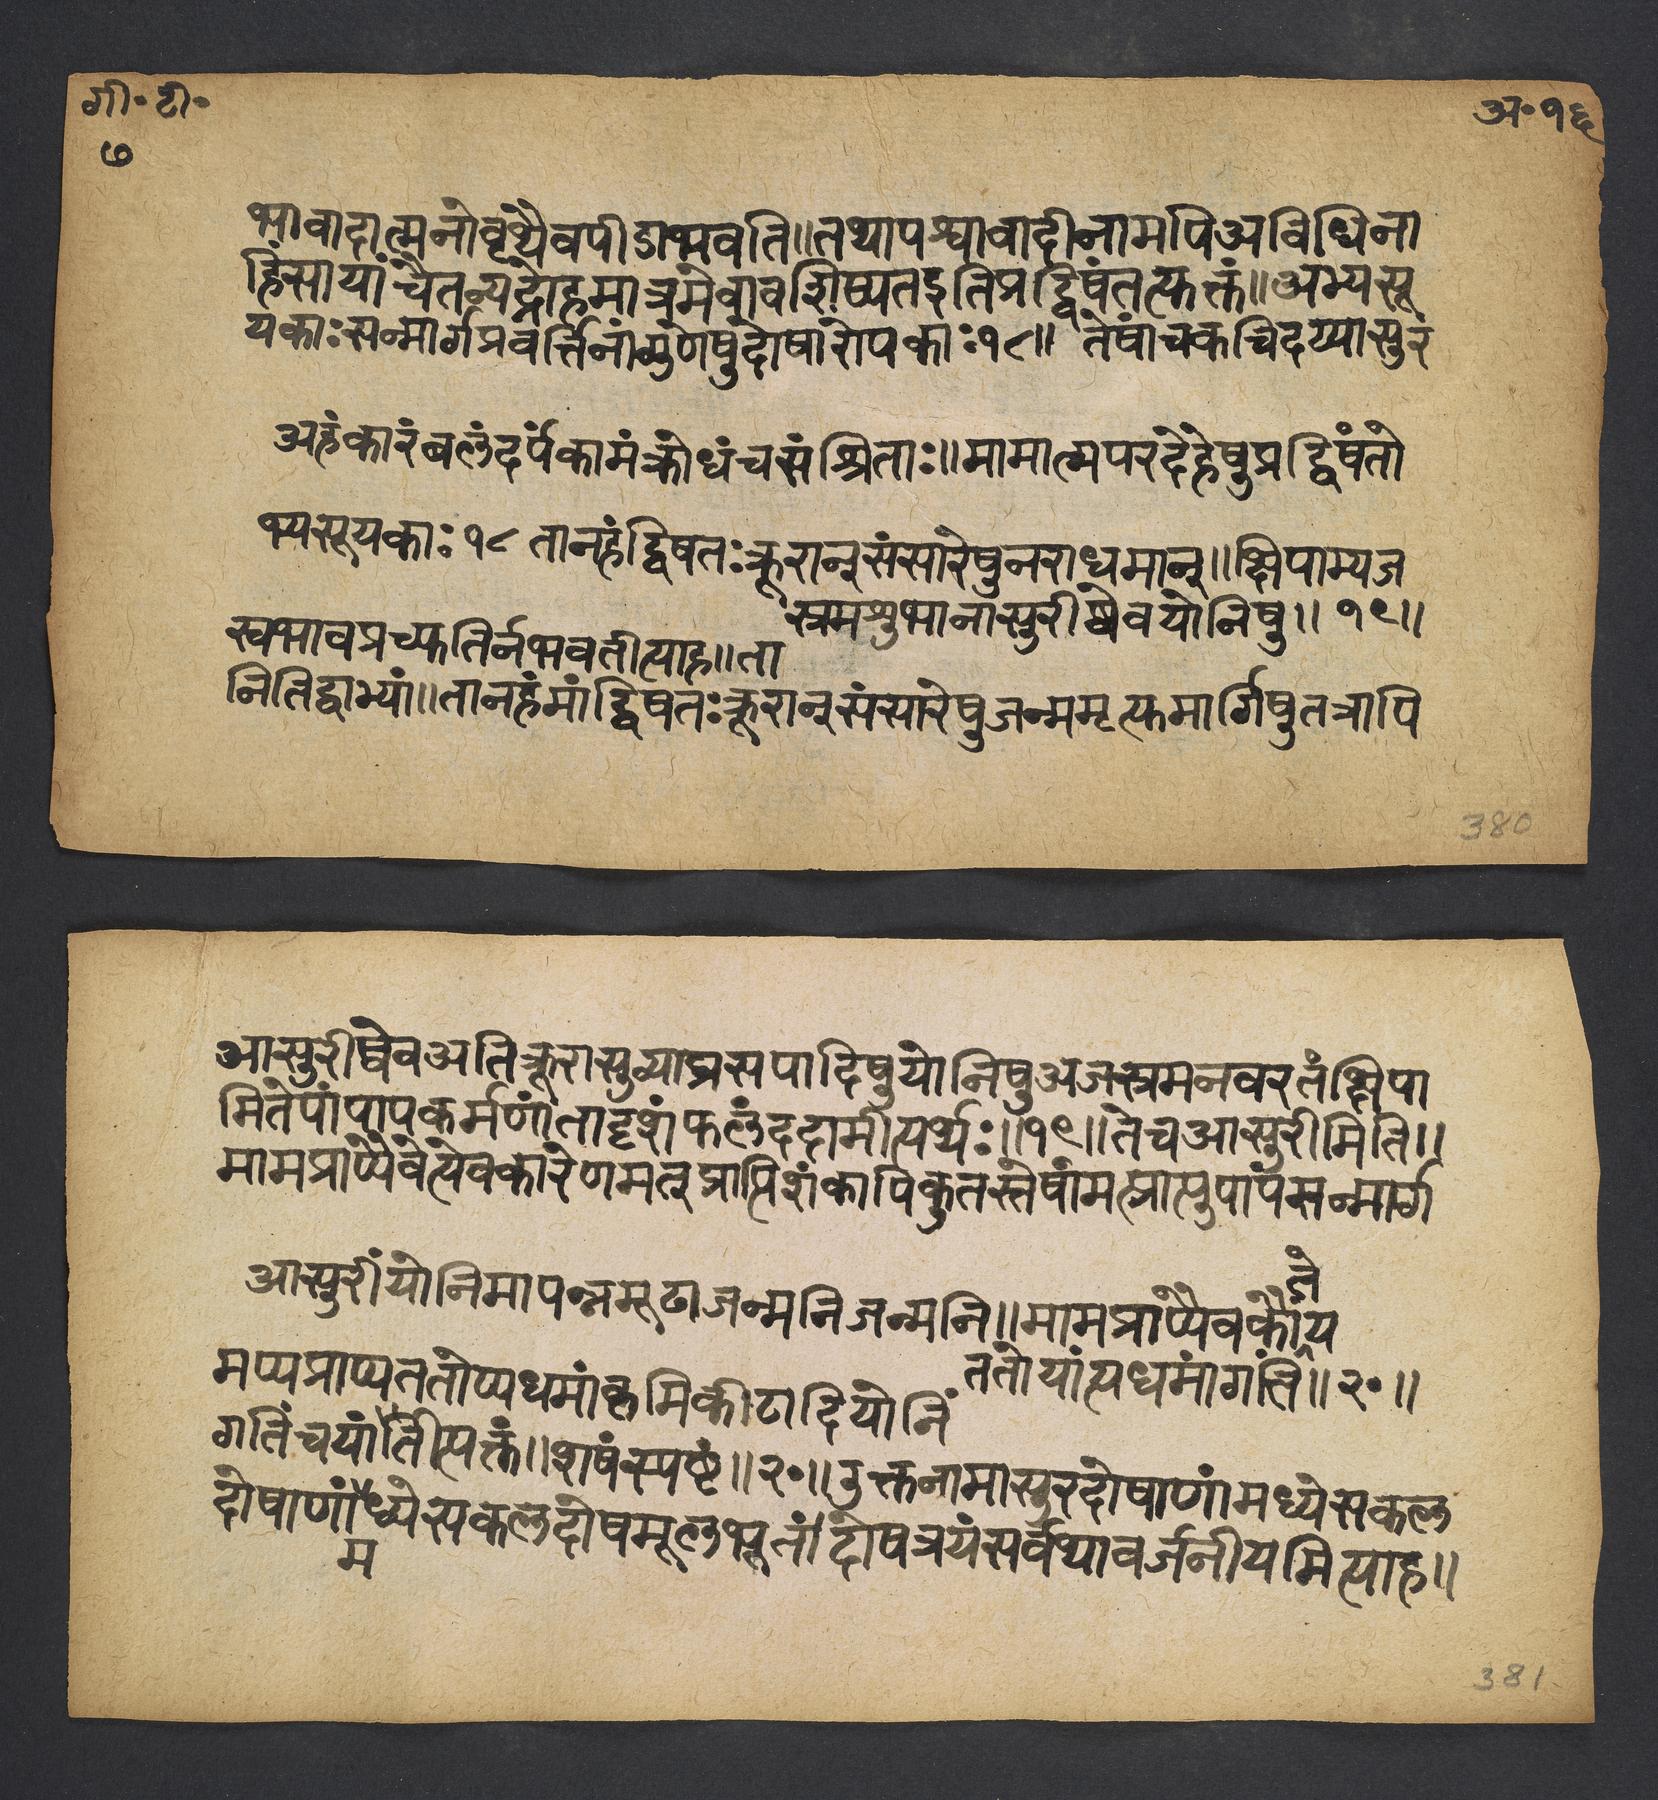 गी॰ टी॰
७
अ॰ १६
भावादात्मनोवृथैवपीडाभवति॥तथापश्वावादीनामपिअविधिना
हिंसायांचैतन्यद्रोहमात्रमेवावशिष्यतइतिप्रद्विषंतत्युक्तं॥अभ्यसू
यकाःसन्मार्गप्रवर्त्तिनांगुणेषुदोषारोपकाः१८॥ तेषांचकचिदप्यासुर
अहंकारंबलंदर्पंकामंक्रोधंचसंश्रिताः॥मामात्मपरदेहेषुप्रद्विषंतो
भ्यसूयकाः१८ तानहंद्विषतःक्रूरान्संसारेषुनराधमान्॥क्षिपाम्यज
स्त्रमशुभानासुरीष्वेवयोनिषु॥ १९॥
स्वभावप्रच्युतिर्नभवतीत्याह॥ता
नितिद्वाभ्यां॥तानहंमांद्विषतःक्रूरान्संसारेषुजन्ममृत्युमार्गेषुतत्रापि
380
आसुरीष्वेवअतिक्रूरासुव्याघ्रसपादिषुयोनिषुअजस्त्रमनवरतंक्षिपा
मितेषांपापकर्मणांतादृशंफलंददामीत्यर्थः॥१९॥तेचआसुरीमिति॥
मामप्राप्यैवेत्येवकारेणमत्प्राप्तिशंकापिकुतस्तेषांमत्प्राप्त्युपायंसन्मार्ग
आसुरींयोनिमापन्नमूढाजन्मनिजन्मनि॥मामप्राप्यैवकौंय
ते
ततोयांत्यधमांगतिं॥२०॥
मप्यप्राप्यततोप्यधमांकृमिकीटादियोनिं
गतिंचयांतीत्युक्तं॥शेषंस्पष्टं॥२०॥उक्तनामासुरदोषाणांमध्येसकल
दोषाणांध्येसकलदोषमूलभूतंदोषत्रयंसर्वथावर्जनीयमित्याह॥
म
381